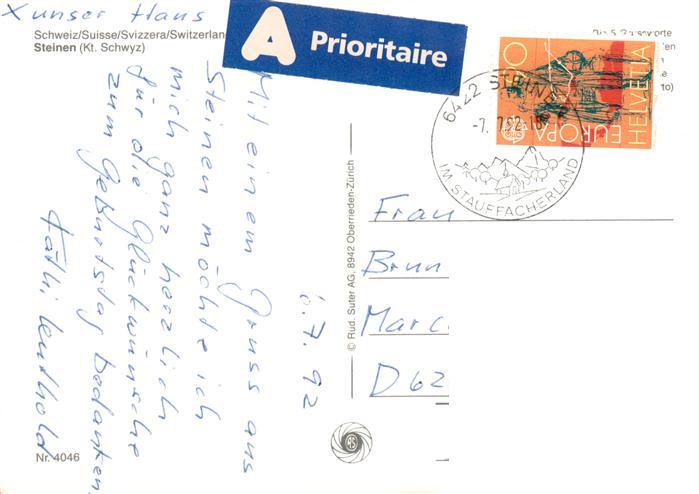 X unser Haus
Schweiz/Suisse/Svizzera/Switzerland
Steinen (Kt. Schwyz)
A Prioritaire
Mit einem Gruss aus
Steinen möchte ich
mich ganz herzlich
für die Glückwünsche
zum Geburtstag bedanken.
6.7.92
© Rud. Suter AG, 8942 Oberrieden-Zürich
Nr. 4046
6422 STEINEN
-7. 7.92-18
IM STAUFFACHERLAND
EUROPA
HELVETIA
Frau
Brun
Marc
D 62